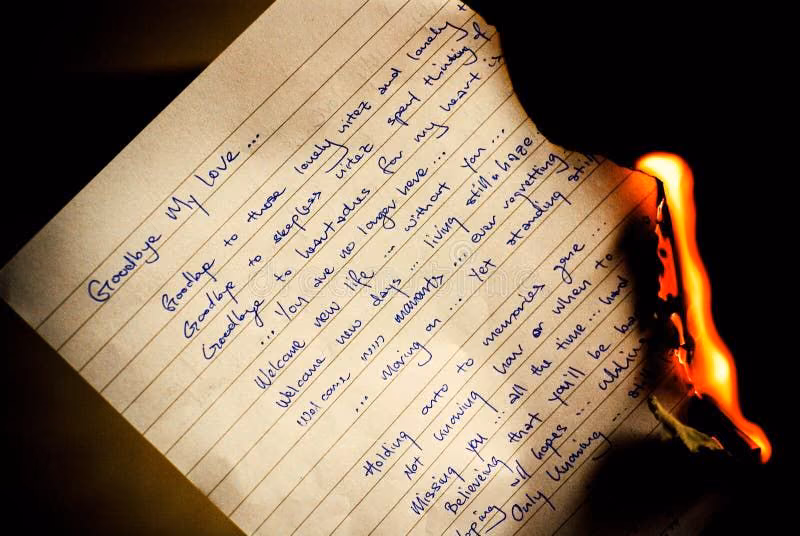 Goodbye My Love...
Goodbye to those lonely nitez and lonely
Goodbye to sleepless nitez spend thinking of
Goodbye to heartaches for my heart is
... You are no longer here...
Welcome new life ... without you...
Welcome new days... living still a haze
Welcome new moments... ever regretting
... Moving on ... Yet standing still
Holding onto to memories gone...
Not knowing how or when to
Missing you... all the time... hard
Believeing that you'll be be
oping hopes... wishing
Only knowing ...
dreamstime